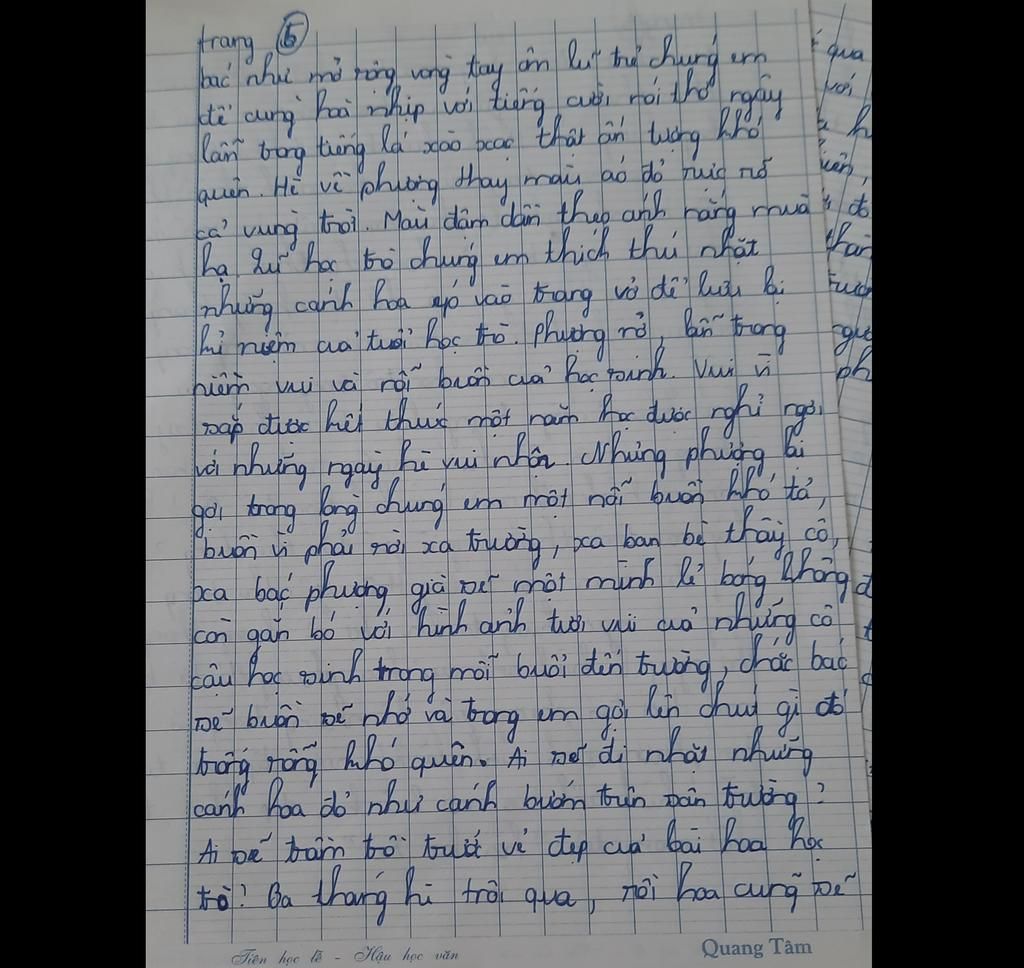 trang 5
bác như mở rộng vòng tay ôm lứ trẻ chúng em
để cùng hoà nhịp với tiếng cười nói thơ ngây
lẫn trong tiếng lá xào xạc thật ấn tượng khó
quên. Hè về phượng thay màu áo đỏ rực rỡ
cả vùng trời. Màu đậm dần theo ánh nắng mùa
hạ. Lứ học trò chúng em thích thú nhặt
những cánh hoa ép vào trang vở để lưu lại
kỉ niệm của tuổi học trò. Phượng nở, lẫn trong
niềm vui và nỗi buồn của học sinh. Vui vì
sắp được kết thúc một năm học được nghỉ ngơi
với những ngày hè vui nhộn. Nhưng phượng lại
gợi trong lòng chúng em một nỗi buồn khó tả,
buồn vì phải rời xa trường, xa bạn bè thầy cô,
xa bác phượng già sẽ một mình lẻ bóng không
còn gắn bó với hình ảnh tươi vui của những cô
cậu học sinh trong mỗi buổi đến trường, chắc bác
sẽ buồn sẽ nhớ và trong em gợi lên chút gì đó
trống rỗng khó quên. Ai sẽ đi nhặt những
cánh hoa đỏ như cánh bướm trên sân trường?
Ai sẽ trầm trồ trướt vẻ đẹp của loài hoa học
trò? Ba tháng hè trôi qua, rồi hoa cũng sẽ
Tiên học lễ - Hậu học văn
Quang Tâm